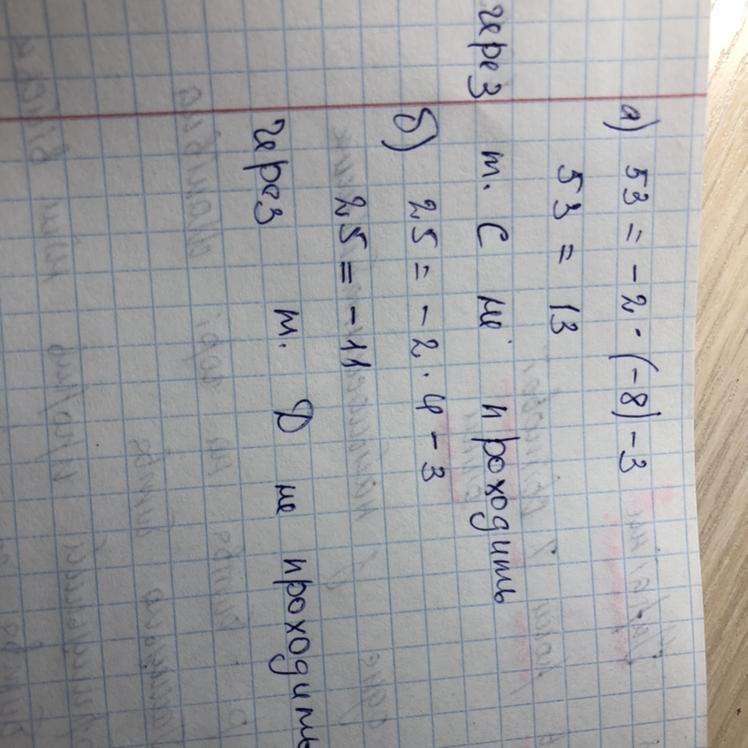 а) 53 = -2·(-8)-3
53 = 13
через т. С не проходить
б) 25 = -2·4-3
25 = -11
через т. D не проходить